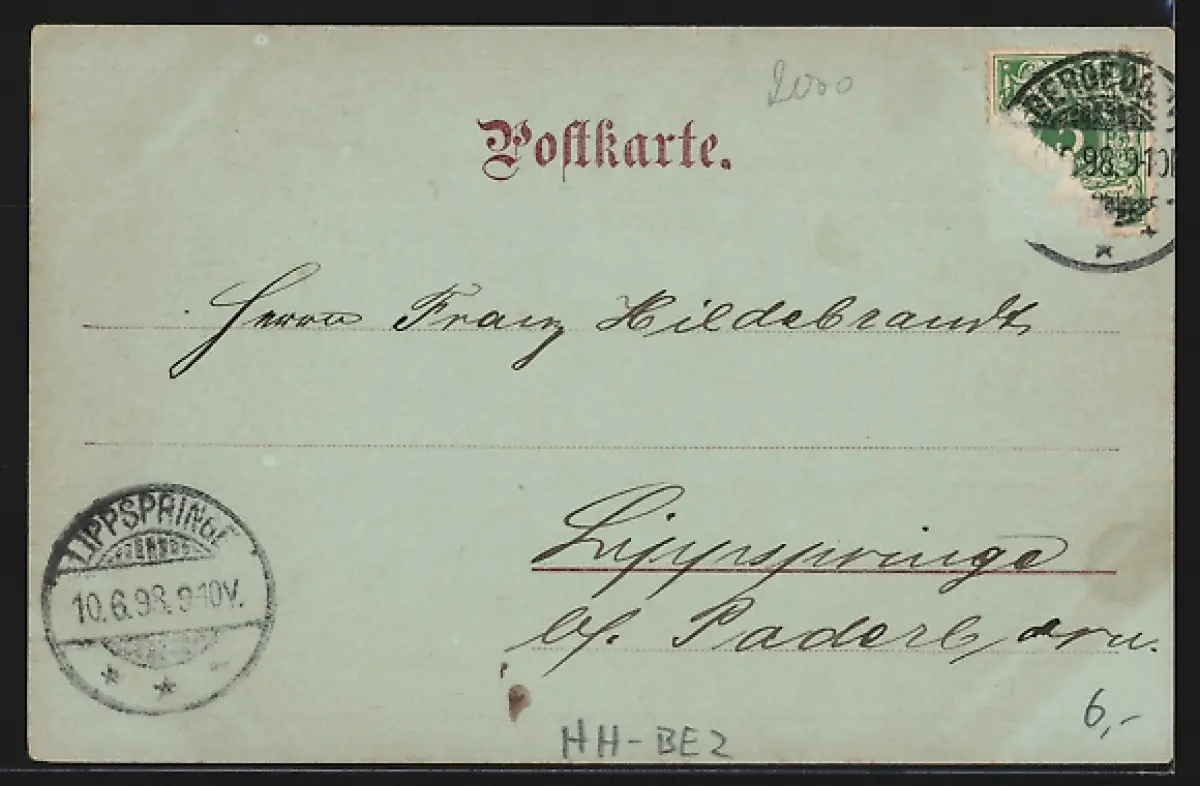 2000
Postkarte.
BERGEDO
5
.98. 9-10
Herrn Franz Hildebrandt
LIPPSPRINGE
10.6.98. 9-10V.
Lippspringe
b/. Paderborn.
6,-
HH-BE2